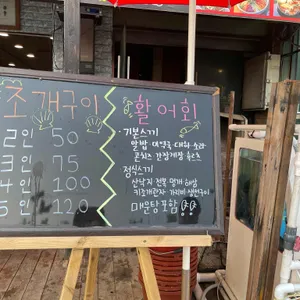 조개구이
2인 50
3인 75
4인 100
5인 120
활어회
·기본스끼
알밥 미역국 대하 소라
콘치즈
·정식스끼
산낙지 전복 멍게 해삼
키조개관자 가리비 생선구이
매운탕포함